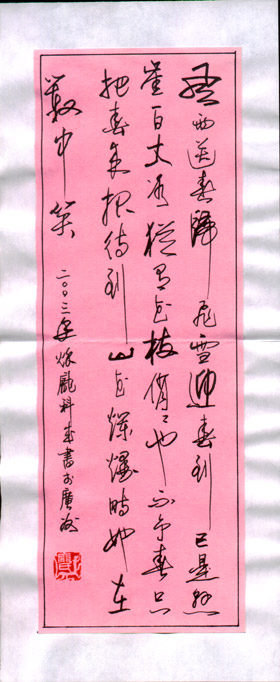 風雨送春歸飛雪迎春到已是懸
崖百丈冰猶有花枝俏々也不争春只
把春来报待到山花爛熳時她在
叢中笑
二〇〇三年秋龐科春書於廣州